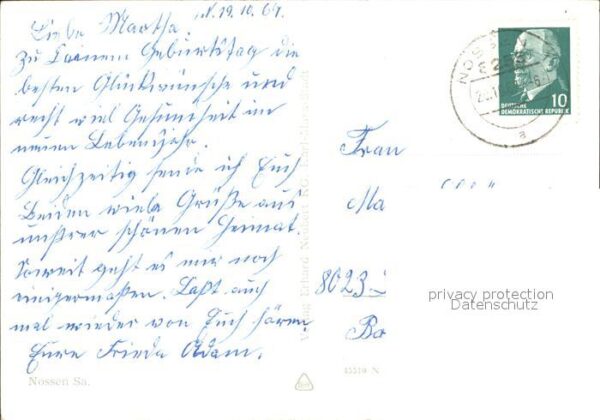 N. 19.10.64.
Liebe Martha.
Zu Deinem Geburtstag die
besten Glückwünsche und
recht viel Gesundheit im
neuen Lebensjahr.
Gleichzeitig sende ich Euch
Beiden viele Grüße aus
unsrer schönen Heimat.
Soweit geht es mir noch
einigermaßen. Laßt auch
mal wieder von Euch hören.
Eure Frieda Adam.
Nossen Sa.
Verlag Erhard Neubert KG
45519 N
NOSSEN
a
10
DEUTSCHE
DEMOKRATISCHE REPUBLIK
Frau
Ma
8023
Ba
privacy protection
Datenschutz